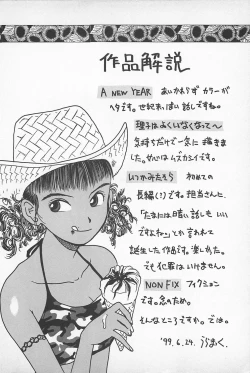 作品解説
A NEW YEAR あいかわらず カラーが
ヘタです。世紀末っぽい話しですね。
理子はふくいなくなって〜
気持ちだけで一気に描きま
した。女心はムズカシイです。
いつかみたそら 初めての
長編(?)です。担当さんに、
「たまには暗い話しも いい
ですよネ」とか言われて
誕生した作品です。楽しかった。
でも犯罪はいけません。
NON FIX フィクション
です。念のため。
そんなところですか。では。
'99.6.24.